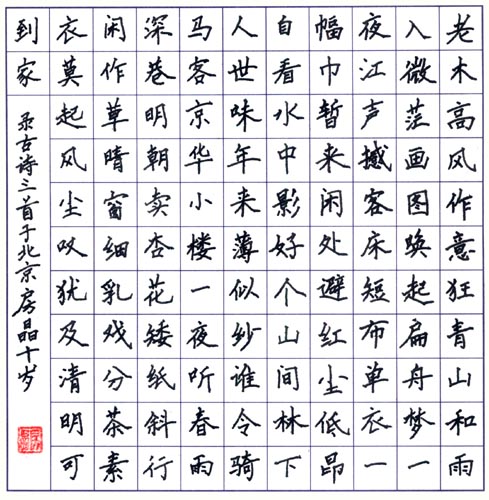 老木高风作意狂青山和雨
入微茫画图唤起扁舟梦一
夜江声撼客床短布单衣一
幅巾暂来闲处避红尘低昂
自看水中影好个山间林下
人世味年来薄似纱谁令骑
马客京华小楼一夜听春雨
深巷明朝卖杏花矮纸斜行
闲作草晴窗细乳戏分茶素
衣莫起风尘叹犹及清明可
到家
录古诗三首于北京房晶十岁